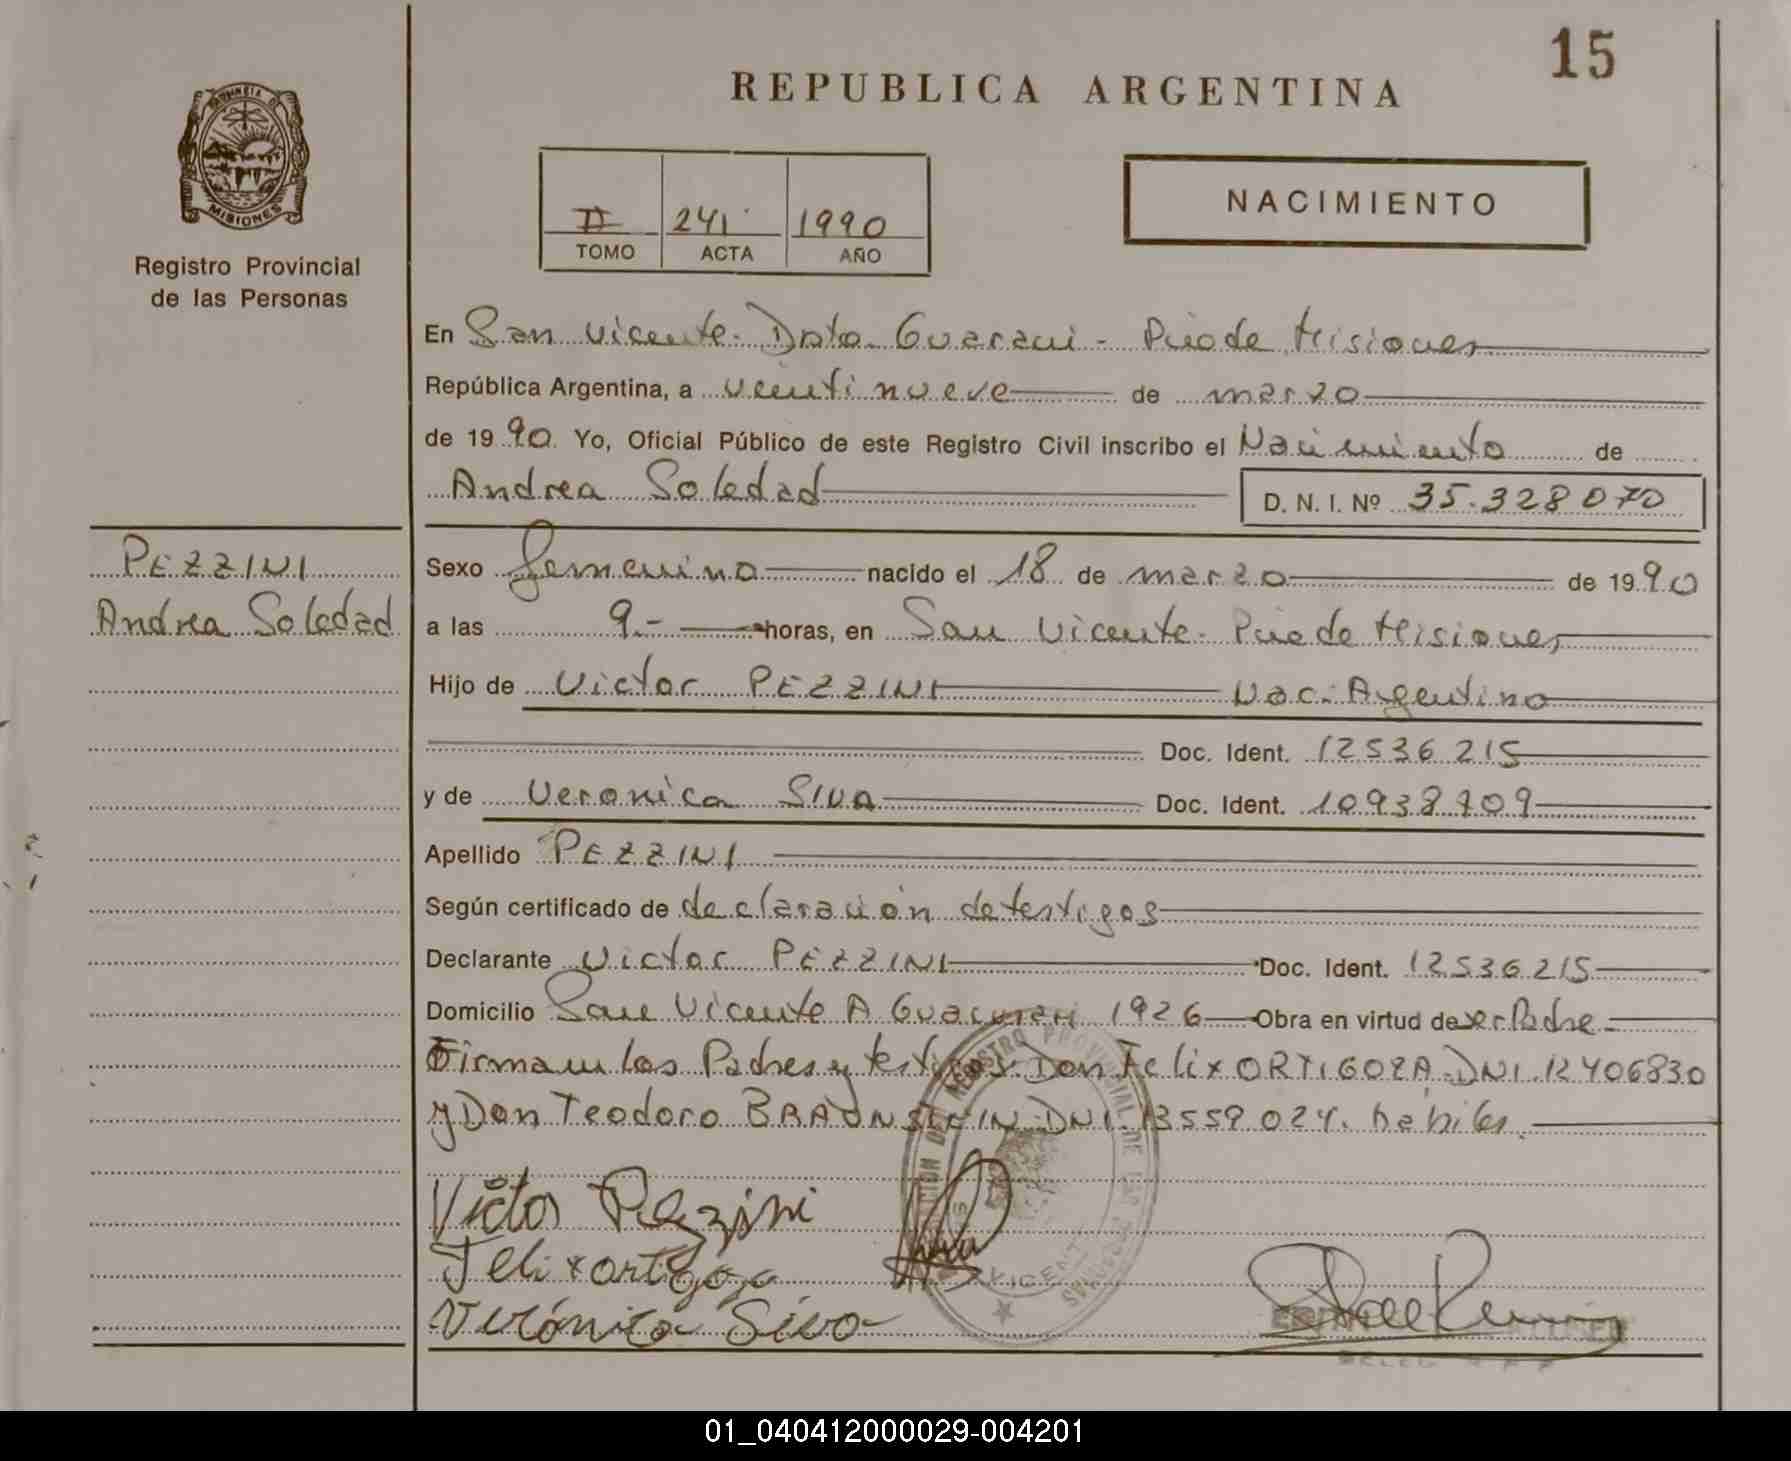 15
REPUBLICA ARGENTINA
PROVINCIA DE
MISIONES
Registro Provincial
de las Personas
II 241 1990
TOMO ACTA AÑO
NACIMIENTO
En San Vicente - Dpto. Guarani - Pcia de Misiones
República Argentina, a veinti nueve de marzo
de 1990. Yo, Oficial Público de este Registro Civil inscribo el Nacimiento de
Andrea Soledad D. N. I. Nº 35.328070
PEZZINI
Andrea Soledad
Sexo femenino nacido el 18 de marzo de 1990
a las 9.- horas, en San Vicente - Pcia de Misiones
Hijo de Victor PEZZINI Nac. Argentino
Doc. Ident. 12536215
y de Veronica SIVA Doc. Ident. 10938709
Apellido PEZZINI
Según certificado de declaración de testigos
Declarante Victor PEZZINI Doc. Ident. 12536215
Domicilio San Vicente A Guacurari 1926 Obra en virtud de ser Padre -
Firman los Padres y testigos: Don Felix ORTIGOZA - DNI. 12406830
y Don Teodoro BRAUNSTEIN - DNI. 13559024. habiles.
Victor Pezzini
Felix ortigoza
Verónica Siva
REGISTRO PROVINCIAL DE LAS PERSONAS
VICENTE
MISIONES
01_040412000029-004201